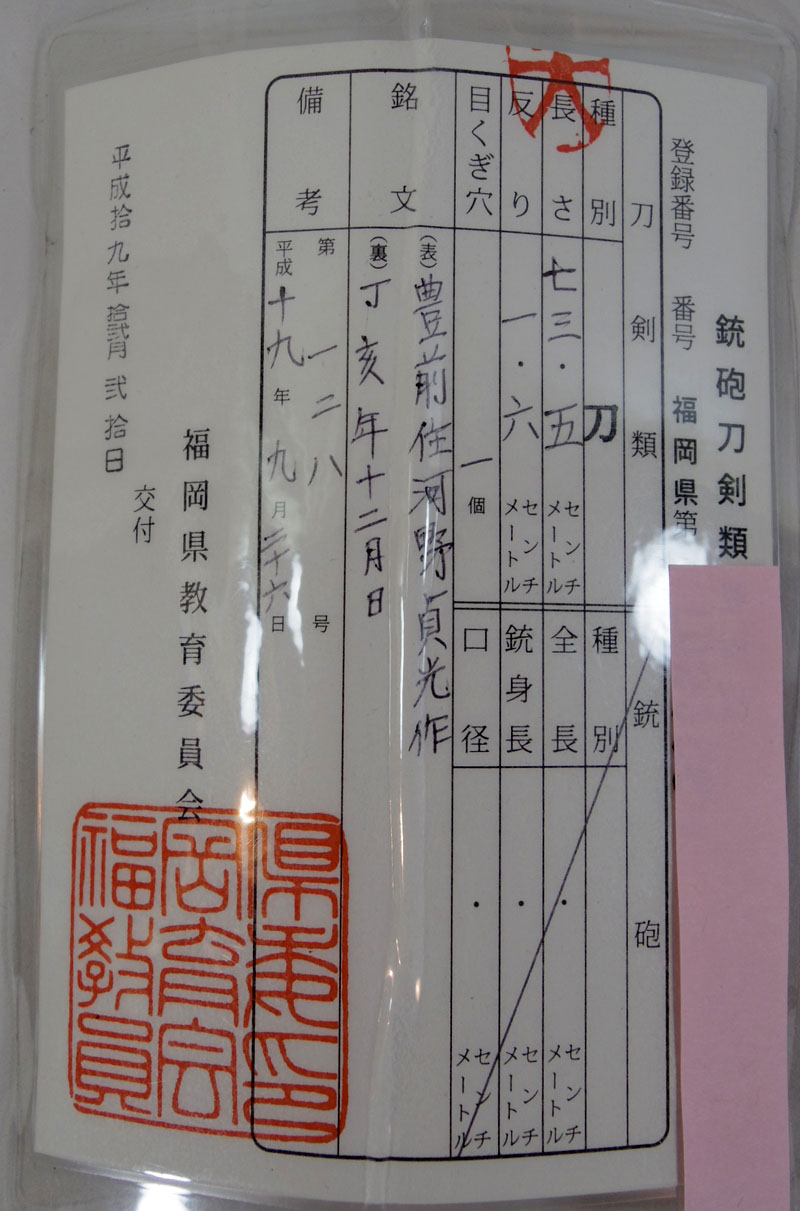 銃砲刀剣類
登録番号 番号 福岡県第
刀剣類 銃砲
種別 刀 種別
長さ 七三・五 センチメートル 全長 ・ センチメートル
反り 一・六 センチメートル 銃身長 ・ センチメートル
目くぎ穴 一個 口径 ・ センチメートル
銘文 (表) 豊前住河野貞光作
(裏) 丁亥年十二月日
備考 第一二八号
平成十九年九月二十六日
平成拾九年拾弐月弐拾日
交付
福岡県教育委員会
県委印
岡育会
福教員